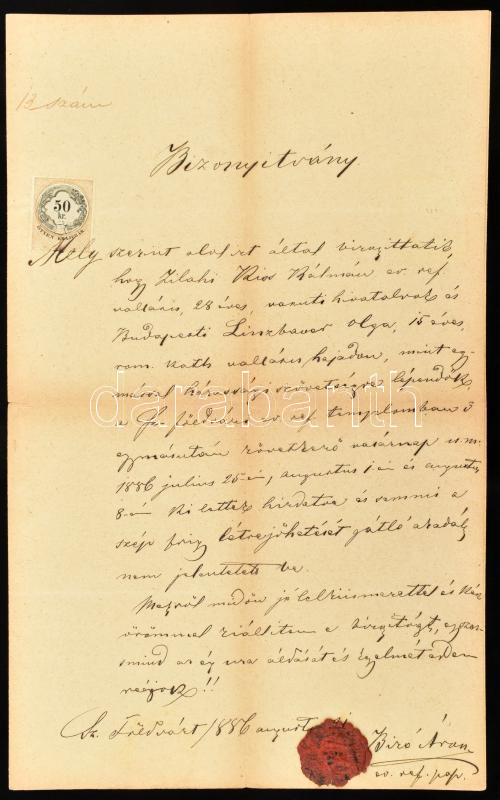 13 szám
Bizonyitvány
50
kr.
Mely szerint alolirt által bizonyittatik
hogy Zilahi Kiss Kálmán ev. ref.
vallásu, 28 éves, vasuti hivatalnok és
Budapesti Linzbauer Olga, 15 éves,
rom. kath vallásu hajadon, mint egy-
mással házassági szövetségre lépendők
a Sz. földvári ev. ref. templomban 3
egymásután következő vasárnap u. m.
1886 julius 25-én, augusztus 1-én és augusztus
8-án ki lettek hirdetve és semmi a
szép frigy létrejöhetését gátló akadály
nem jelentetett be.
Melyről midőn jó lelkiismerettel és
örömmel kiállitom e bizonyitványt, egyszer-
smind az ég ura áldását és kegyelmét
reájok!!
Sz. Földvárt 1886 augusztus
Biró Áron
ev. ref. pap.
darabanth